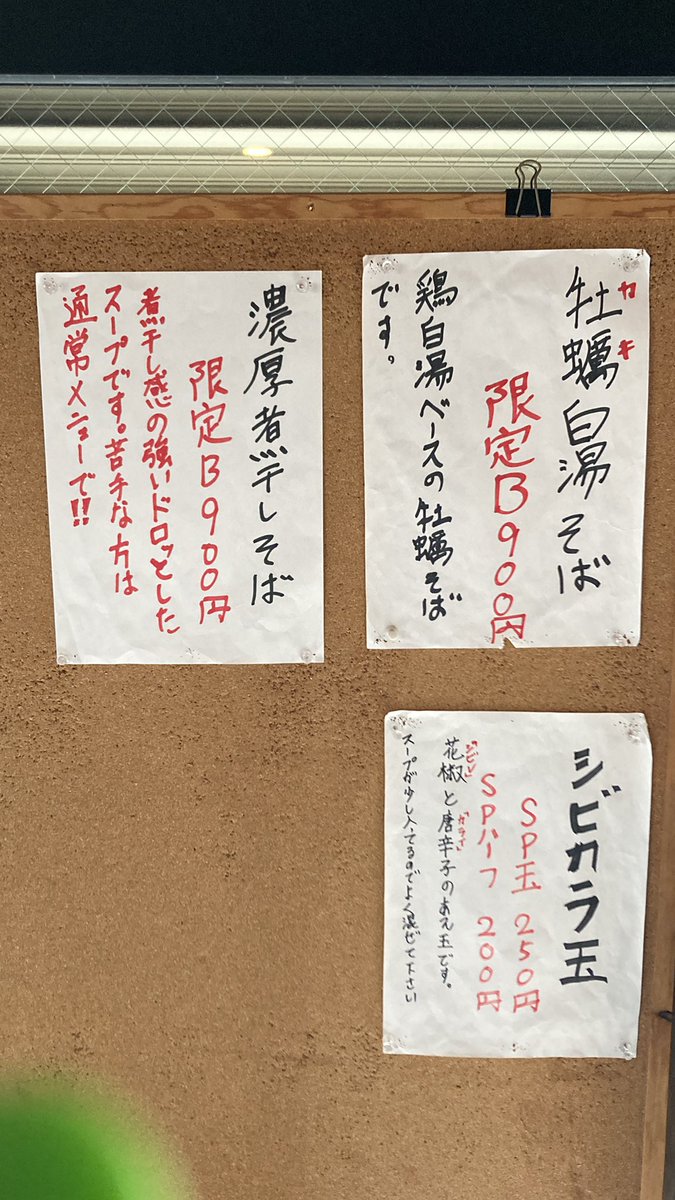 牡蠣白湯そば
カキ
限定B900円
鶏白湯ベースの牡蠣そば
です。
濃厚煮干しそば
限定B900円
煮干し感の強いドロッとした
スープです。苦手な方は
通常メニューで!!
シビカラ玉
SP玉 250円
SPハーフ 200円
"シビレ"
"カライ"
花椒と唐辛子のあえ玉です。
スープが少し入ってるのでよく混ぜて下さい